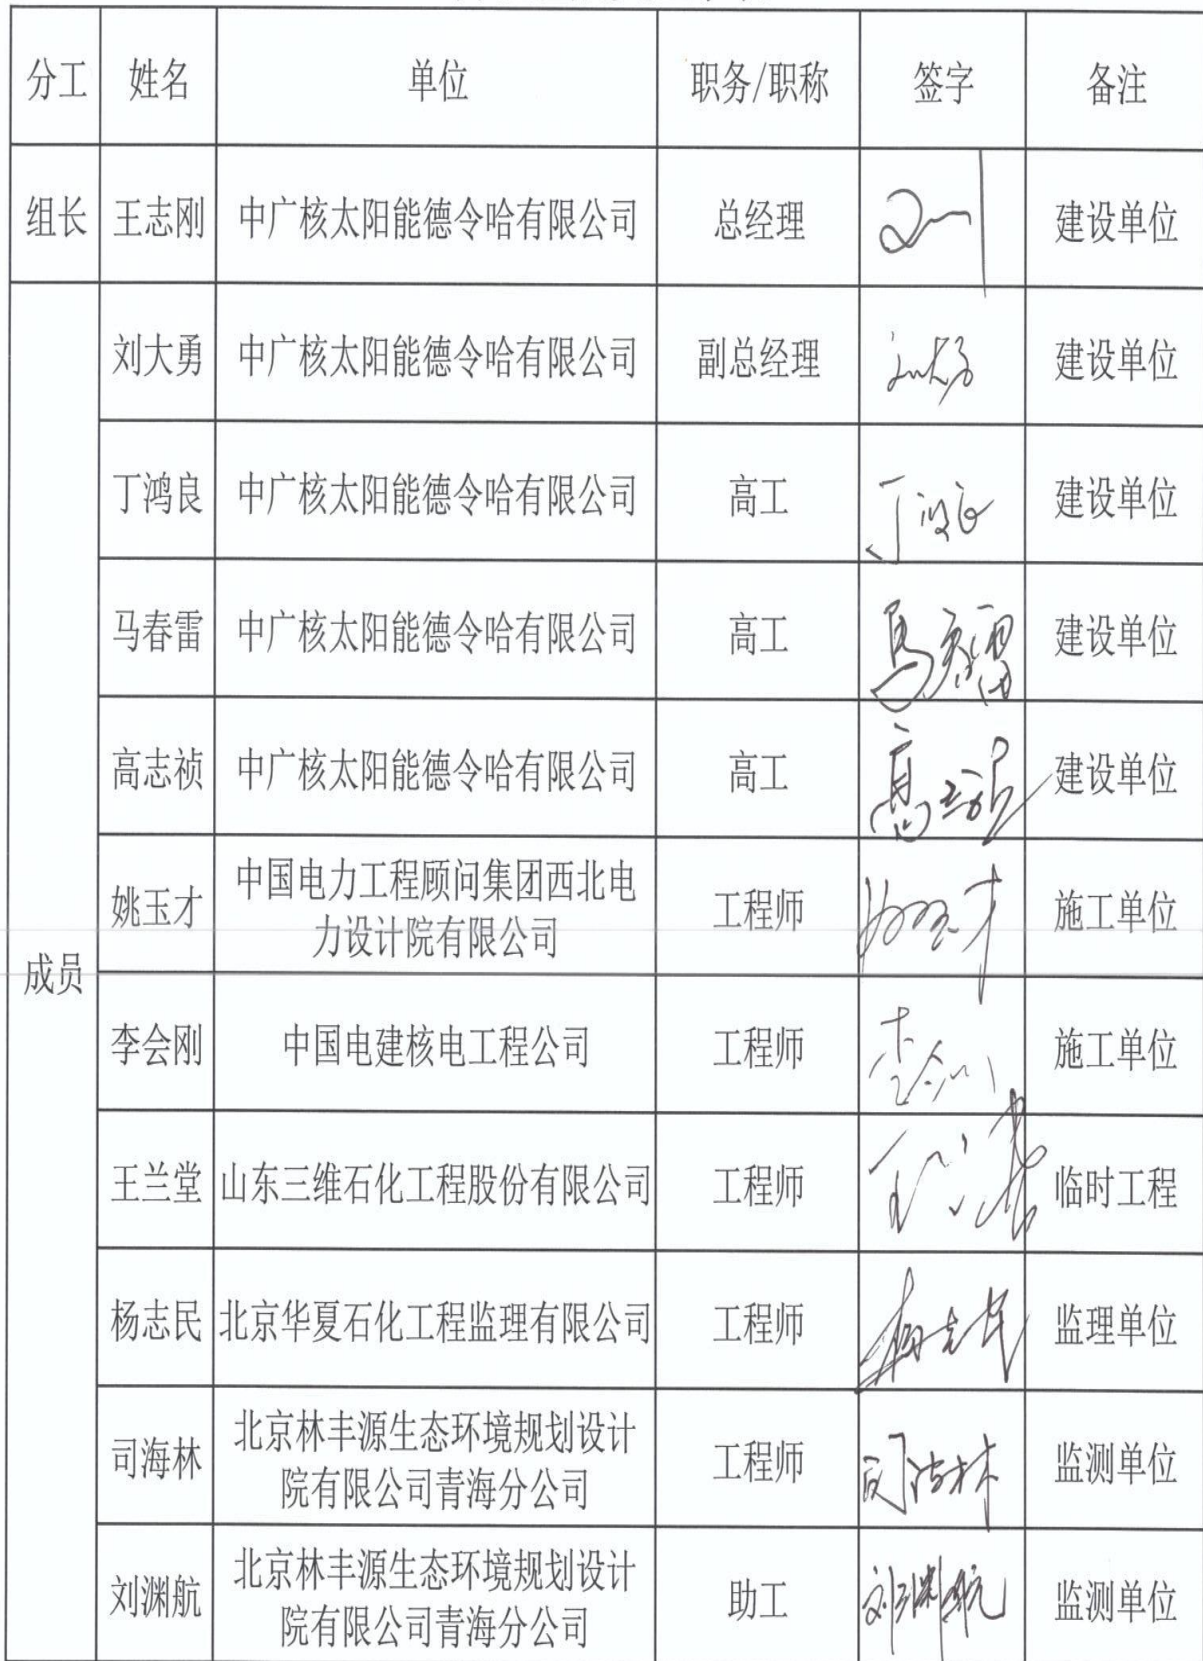 分工 姓名 单位 职务/职称 签字 备注
组长 王志刚 中广核太阳能德令哈有限公司 总经理 建设单位
刘大勇 中广核太阳能德令哈有限公司 副总经理 刘大勇 建设单位
丁鸿良 中广核太阳能德令哈有限公司 高工 丁鸿良 建设单位
马春雷 中广核太阳能德令哈有限公司 高工 馬春雷 建设单位
高志祯 中广核太阳能德令哈有限公司 高工 高志祯 建设单位
姚玉才 中国电力工程顾问集团西北电 工程师 姚玉才 施工单位
力设计院有限公司
成员
李会刚 中国电建核电工程公司 工程师 李会刚 施工单位
王兰堂 山东三维石化工程股份有限公司 工程师 王兰堂 临时工程
杨志民 北京华夏石化工程监理有限公司 工程师 杨志民 监理单位
司海林 北京林丰源生态环境规划设计 工程师 司海林 监测单位
院有限公司青海分公司
刘渊航 北京林丰源生态环境规划设计 助工 刘渊航 监测单位
院有限公司青海分公司